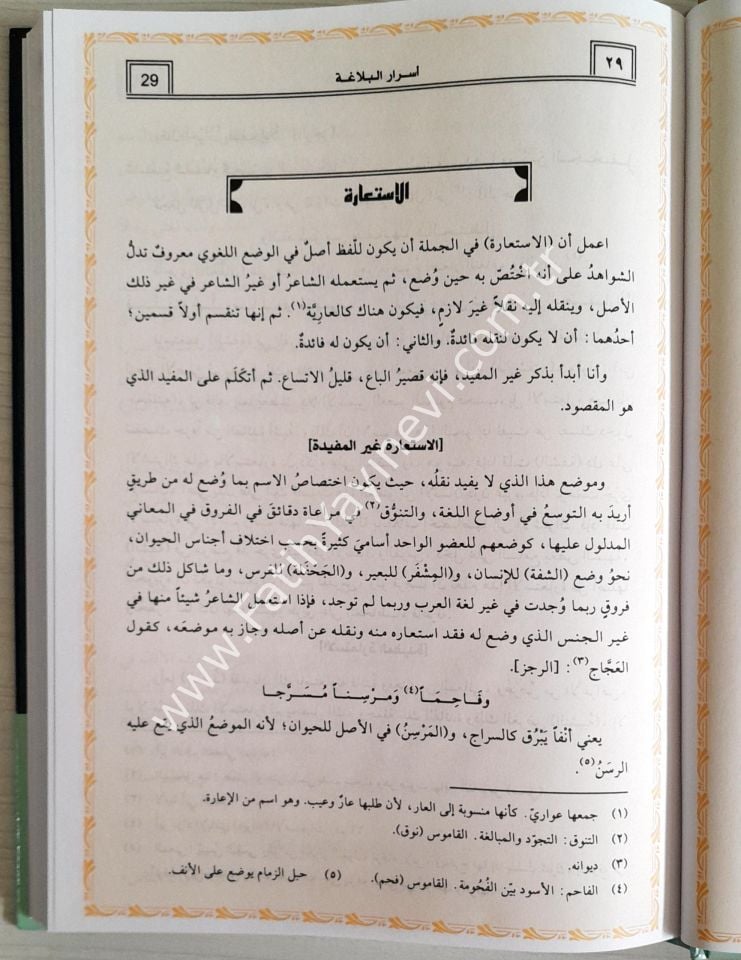 ٢٩
أسرار البلاغة
29
الاستعارة
اعمل أن (الاستعارة) في الجملة أن يكون للّفظ أصلٌ في الوضع اللغوي معروفٌ تدلُّ
الشواهدُ على أنه اخْتُصّ به حين وُضع، ثم يستعمله الشاعرُ أو غيرُ الشاعر في غير ذلك
الأصل، وينقله إليه نقلاً غيرَ لازمٍ، فيكون هناك كالعاريَّة(١). ثم إنها تنقسم أولاً قسمين؛
أحدُهما: أن لا يكون لنقله فائدةٌ. والثاني: أن يكون له فائدةٌ.
وأنا أبدأ بذكر غير المفيد، فإنه قصيرُ الباع، قليلُ الاتساع. ثم أتكلّم على المفيد الذي
هو المقصود.
[الاستعارة غير المفيدة]
وموضع هذا الذي لا يفيد نقلُه، حيث يكون اختصاصُ الاسم بما وُضع له من طريقٍ
أريدَ به التوسعُ في أوضاع اللغة، والتنوُّق(٢) في مراعاة دقائقَ في الفروق في المعاني
المدلول عليها، كوضعهم للعضو الواحد أساميَ كثيرةً بحسب اختلاف أجناس الحيوان،
نحوُ وضع (الشفة) للإنسان، و(المِشْفَر) للبعير، و(الجَحْفَلة) للفَرس، وما شاكل ذلك من
فروقٍ ربما وُجدت في غير لغة العرب وربما لم توجد، فإذا استعمل الشاعرُ شيئاً منها في
غير الجنس الذي وضع له فقد استعاره منه ونقله عن أصله وجاز به موضعَه، كقول
العَجَّاج(٣): [الرجز].
وفَاحِمَاً(٤) ومَرْسِناً مُسَرَّجا
يعني أنْفاً يَبْرُق كالسراج، و(المَرْسِنُ) في الأصل للحيوان؛ لأنه الموضعُ الذي يقع عليه
الرسَنُ(٥).
(١) جمعها عواريّ. كأنها منسوبة إلى العار، لأن طلبها عارٌ وعيب. وهو اسم من الإعارة.
(٢) التنوق: التجوّد والمبالغة. القاموس (نوق).
(٣) ديوانه.
(٤) الفاحم: الأسود بيّن الفُحُومة. القاموس (فحم). (٥) حبل الزمام يوضع على الأنف.
www.FatihYayinevi.com.tr